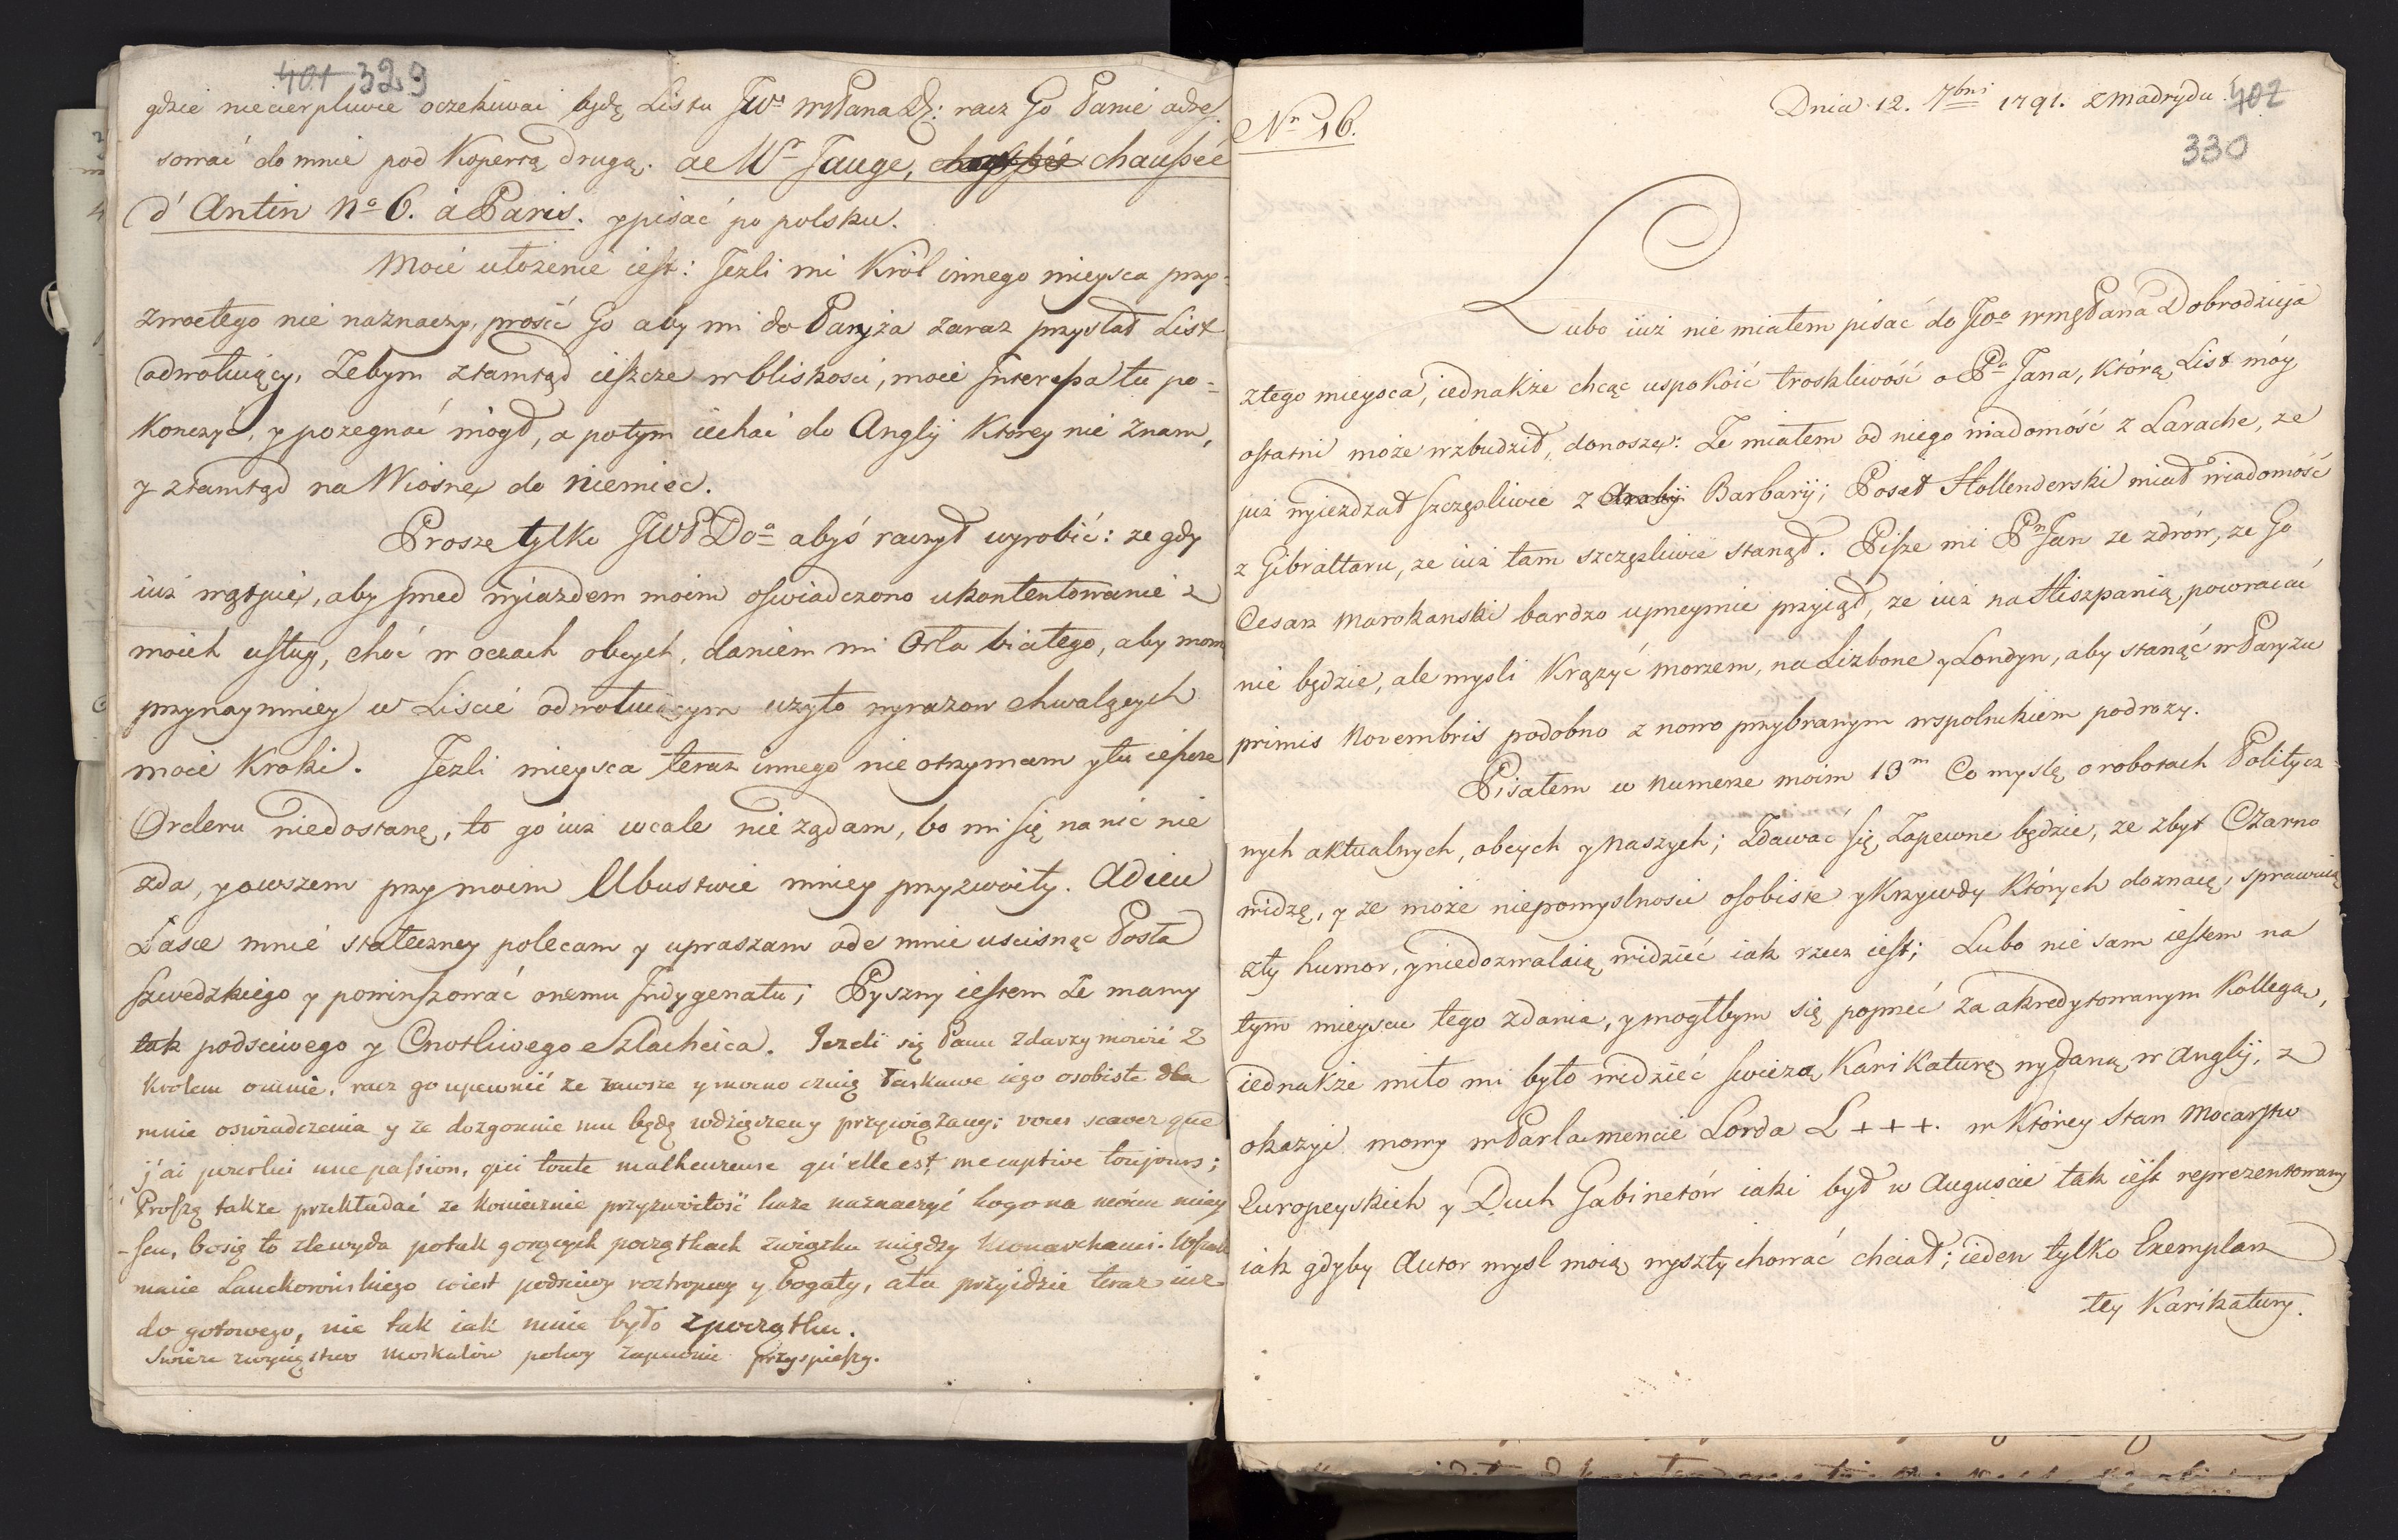 401 329
gdzie niecierpliwie oczekiwać będę Listu JWo WPana D: racz Go Panie adre-
sować do mnie pod Kopertą drugą. a Mr Jauge, chaussée
d'Antin No 6. à Paris. y pisać po polsku.
Moie ułożenie iest: Jezli mi Król innego mieysca przy-
zwoitego nie naznaczy, prosić Go aby mi do Paryża zaraz przysłał List
odwołuiący, Zebym ztamtąd ieszcze w bliskosci, moie Interessa tu po-
konczyć, y pozegnać mógł, a potym iechać do Anglij Ktorey nie znam,
y ztamtąd na Wiosnę do Niemiec.
Proszę tylko JWP Doa abyś raczył wyrobić: ze gdy
iuz wątpię, aby przed wyiazdem moim oswiadczono ukontentowanie z
moich usług, choć w oczach obcych, daniem mi Orła białego, aby mom
przynaymniey w Liscie odwołuiącym uzyto wyrazow chwalących
moie Kroki. Jezli mieysca teraz innego nie otrzymam y tu iescze
Orderu niedostanę, to go iuz wcale nie ządam, bo mi się na nic nie
zda, y owszem przy moim Ubustwie mniey przyzwoity. Adieu
Łasce mnie stateczney polecam y upraszam ode mnie uscisnąc Posła
szwedzkiego y powinszować onemu Indygenatu; Pyszny iestem Ze mamy
tak podsciwego y Cnotliwego Szlachcica. Jezeli się Panu zdarzy mowić z
Krolem o mnie, racz go upewnić ze zawsze y mocno czuię łaskawe iego osobiste dla
mnie oswiadczenia y ze dozgonnie mu będę wdzięczeny przywiązany; vous scavez que
j'ai pour lui une passion, qui toute malheureuse qu'elle est, me captive toujours;
Proszę takze przekładać ze koniecznie przyzwoitość kaze naznaczyć kogo na moim miey
-scu, bo się to zle wyda po tak gorących początkach związku między Monarchami.
manie Lanckorońskiego wiest podsciwy roztropny y bogaty, a tu przyidzie teraz iuz
do gotowego, nie tak iak mnie było z początku.
Swieze zwycięstwo Moskalów pokoy zapewnie przyspieszy.
402
330
Dnia 12. 7bris 1791. z Madrydu.
Nr 16.
Lubo iuż nie miałem pisać do JWo WmgPana Dobrodzieja
ztego mieysca, iednakże chcąc uspokoić troskliwość o Pa Jana, którą List móy
ostatni może wzbudził, donoszę: Ze miałem od niego wiadomość z Larache, ze
juz wyiezdzał szczęsliwie z Araby Barbaryj; Poseł Hollenderski miał wiadomość
z Gibraltaru, ze iuz tam szczęsliwie stanął. Pisze mi Pn Jan ze zdrów, ze Go
Cesarz Marokanski bardzo uprzeymie przyiął, ze iuz na Hiszpanią powracać
nie będzie, ale mysli Krązyć morzem, na Lizbonę y Londyn, aby stanąć w Paryzu
primis Novembris podobno z nowo przybranym wspolnikiem podrozy.
Pisałem w Numerze moim 13m Co myslę o robotach Politycz-
nych aktualnych, obcych y Naszych; Zdawać się Zapewne będzie, ze zbyt Czarno
widzę, y ze może niepomyslnosci osobiste y Krzywdy Których doznaię, sprawuią
zły humor, y niedozwalaią widzieć iak rzecz iest; Lubo nie sam iestem na
tym mieyscu tego zdania, y mogłbym się poprzeć za akredytowanym Kollegą,
iednakże miło mi było widzieć swieżą Karikaturę wydaną w Anglij, z
okazyi mowy w Parlamencie Lorda L+++. w Którey Stan Mocarstw
Europeyskich y Duch Gabinetów iaki był w Auguscie tak iest reprezentowany
iak gdyby Autor mysl moią wysztychować chciał; ieden tylko Exemplarz
tey Karikatury.